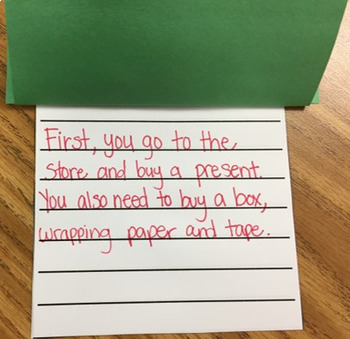 First, you go to the
store and buy a present.
You also need to buy a box,
wrapping paper and tape.